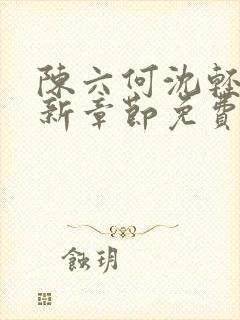 陳六何沈輕
新章節免費
蝕玥